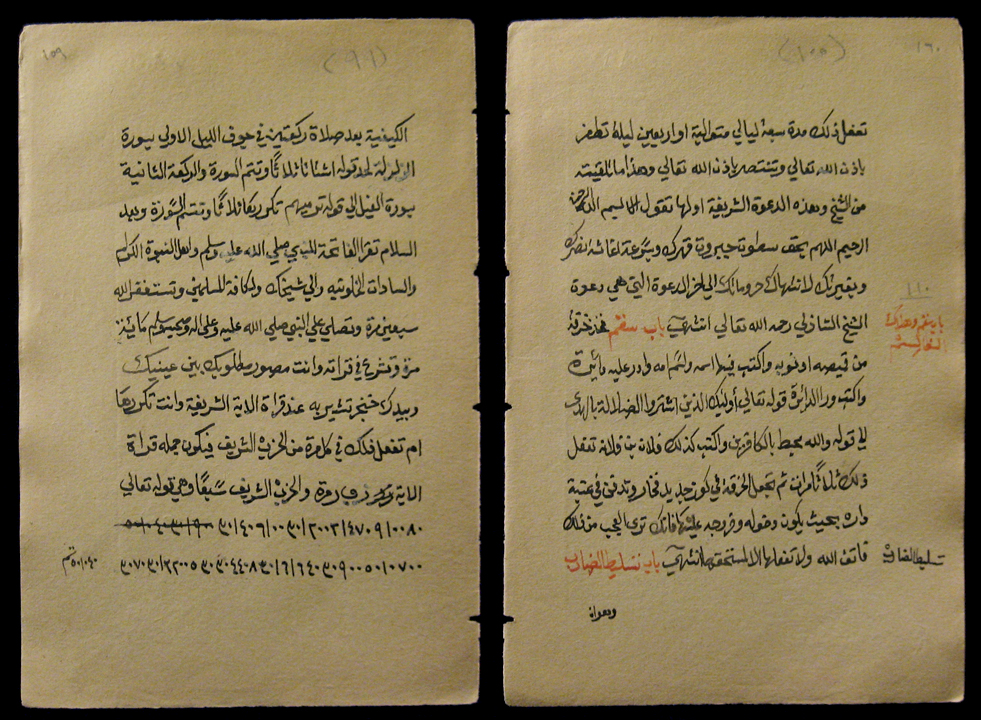 ١٥٩
الكيفية بعد صلاة ركعتين في جوف الليل الاولى بسورة
الزلزلة لحد قوله اشتاتا ثلاثا وتتم السورة والركعة الثانية
بسورة الفيل الى قوله ترميهم تكررها ثلاثا وتتم السورة وبعد
السلام تقرا الفاتحة للنبي صلي الله عليه وسلم ولاهل النبوة الكرام
والسادات الخلوتيه والي شيخك ولكافة المسلمين وتستغفر الله
سبعين مرة وتصلي علي النبي صلي الله عليه وعلى اله وصحبه وسلم مائة
مرة وتشرع في قراته وانت مصور مطلوبك بين عينيك
وبيدك خنجر تشير به عند قراة الاية الشريفة وانت تكررها
ام تفعل ذلك في كل مرة من الحزب الشريف فيكون جملة قراة
الاية مرة والحزب الشريف سبعا وهي قوله تعالي
١٦٠
(١٠٠)
تفعل ذلك مدة سبعة ليالي متوالية او اربعين ليلة تظفر
باذن الله تعالي وتنتصر باذن الله تعالي وهذا ما تلقيته
من الشيخ وهذه الدعوة الشريفة اولها تقول بسم الله الرحمن
الرحيم اللهم بحق سطوت جبروت قهرك وبسرعة اغاثة نصرك
وبغيرتك لانتهاك حرماتك الي اخر الدعوة التي هي دعوة
الشيخ الشاذلي رحمه الله تعالي انتهي باب سقم فخذ خرقة
من قميصه او ثوبه واكتب فيها اسمه واسم امه وادر عليه دائرة
واكتب دور الدائرة قوله تعالي أولئك الذين اشتروا الضلالة بالهدى
الي قوله والله محيط بالكافرين واكتب كذلك فلان بن فلانة تفعل
ذلك ثلاثا مرات ثم تجعل الخرقة في كوز جديد فخار وتدفن في عتبة
داره بحيث يكون دخوله وخروجه عليها فانك تري العجب من ذلك
فاتق الله ولا تفعلها الا لمستحقها انتهي باب تسليط الضارب
تسليط الضارب